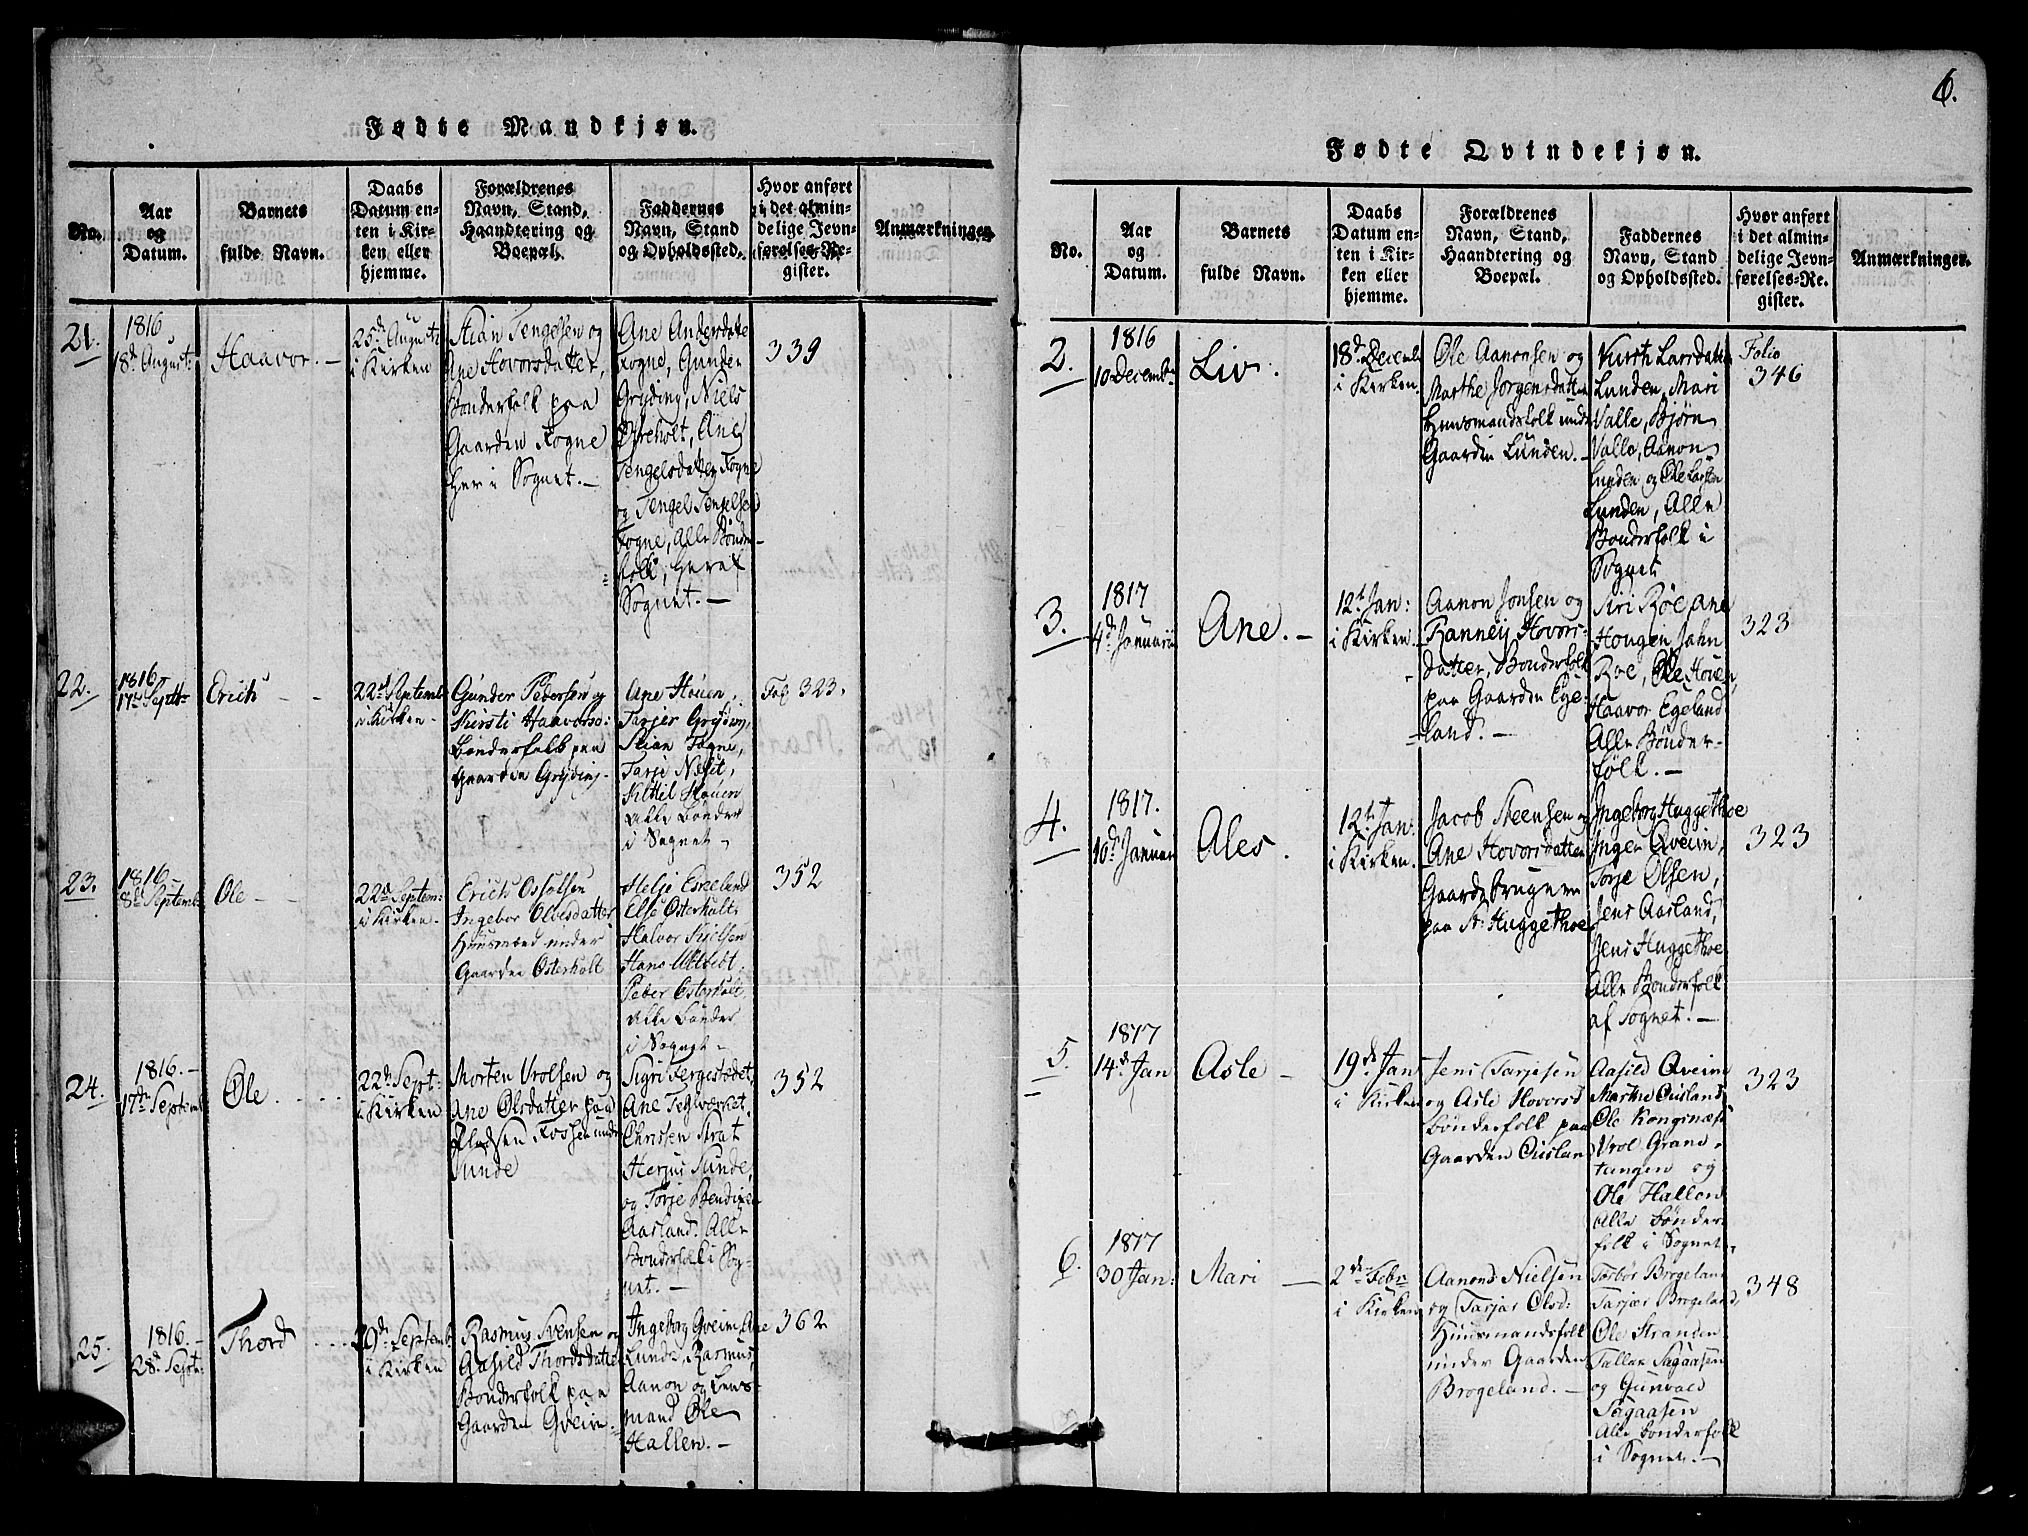 6.
Fødte Mandkjøn.
No.
Aar
og
Datum.
Barnets
fulde Navn.
Daabs
Datum en-
ten i Kir-
ken eller
hjemme.
Forældrenes
Navn, Stand,
Haandtering og
Boepæl.
Faddernes
Navn, Stand
og Opholdssted.
Hvor anført
i det almin-
delige Jevn-
førelses-Re-
gister.
Anmærkninger.
21.
1816
18d August.
Haavor. —
25d August
i Kirken
Stian Tengelsen og
Ane Hovorsdatter,
Bonderfolk paa
Gaarden Fogne
her i Sognet. —
Ane Andersdatter
Fogne, Gunder
Gryding, Niels
Østeholt, Ane
Tengelsdatter Fogne
og Tengel Tengelsen
Fogne, Alle Bønder-
folk, heraf
Sognet. —
339
22.
1816
17de Septbr
Erich
22d Septemb
i Kirken
Gunder Pedersen og
Kirsti Haavorsd:
Bonderfolk paa
Gaarden Gryding.
Ane Houen,
Tarjer Gryding,
Stian Fogne,
Tarje Næset,
Kittil Houen
Alle Bønder
i Sognet
Fol: 323.
23.
1816
8de Septemb
Ole
22de Septem:
i Kirken
Erich Ossolsen
Ingebor Olvesdatter
Huusmæd under
Gaarden Østerholt
Helje Esxeland
Else Østerholt
Halvor Kielsen
Hans Ultvedt,
Peder Østerholt,
Alle Bønder
i Sognet
352
24.
1816.—
17de Septemb
Ole
22de Sept:
i Kirken
Morten Vrolsen og
Ane Olsdatter paa
Pladsen Fossen under
Sunde
Sigri Fergestædet,
Ane Teglværket,
Christen Strat
Herjus Sunde,
og Torje Bendixen
Aasland. Alle
Bonderfolk i Sog-
net. —
352
25.
1816.—
28d Septr
Thord
29de Septemb
i Kirken
Rasmus Svensen og
Aasild Thordsdatter
Bonderfolk paa
Gaarden Qveim.
Ingeborg Qveim, Ane
Lunde, Rasmus
Aanon og Lens-
mand Ole
Hallen. —
362
Fødte Qvindekjøn.
No.
Aar
og
Datum.
Barnets
fulde Navn.
Daabs
Datum en-
ten i Kir-
ken eller
hjemme.
Forældrenes
Navn, Stand,
Haandtering og
Boepæl.
Faddernes
Navn, Stand
og Opholdssted.
Hvor anført
i det almin-
delige Jevn-
førelses-Re-
gister.
Anmærkninger.
2.
1816
10 Decemb
Liv.
18d Decemb
i Kirken.
Ole Aanonsen og
Marthe Jorgensdatter
Huusmandsfolk under
Gaarden Lunden.
Kirsti Larsdatter
Lunden, Mari
Valle, Bjørn
Valle, Aanon
Lunden og Ole Larsen
Lunden, Alle
Bonderfolk i
Sognet
Folio
346
3.
1817
4d Januarii
Ane. —
12t Jan:
i Kirken.
Aanon Jonsen og
Ranneij Hovors-
datter, Bonderfolk
paa Gaarden Ege-
land. —
Siri Røe, Ane
Hougen, Jahn
Roe, Ole Houen,
Haavor Egeland
Alle Bønder-
folk. —
323
4.
1817.
10d Januari
Ales.
12t Jan:
i Kirken.
Jacob Steensen og
Ane Hovorsdatter
Gaardebrugere
paa St: Huggethoe
Ingeborg Huggethoe
Inger Qveim,
Torje Olsen,
Jens Aasland,
Jens Huggethoe
Alle Bonderfolk
af Sognet. —
323
5.
1817
14de Jan
Asle —
19de Jan
i Kirken
Jens Tarjesen
og Asle Hovorsd
bønderfolk paa
Gaarden Øislan
Aasild Qveim
Marthe Øisland
Ole Kongsnæs
Vrol Grann-
tangen og
Ole Hallen
Alle bønder
folk i Sognet.
323
6.
1817
30 Jan:
Mari —
2de Febr
i Kirken
Aanond Nielsen
og Tarjar Olsd:
Huusmandsfolk
under Gaarden
Brogeland. —
Torbør Brogeland
Tarjær Brogeland,
Ole Stranden
Tallen Sagaasen
og Gunvald
Sagaasen
Alle bonderfolk
i Sognet. —
348